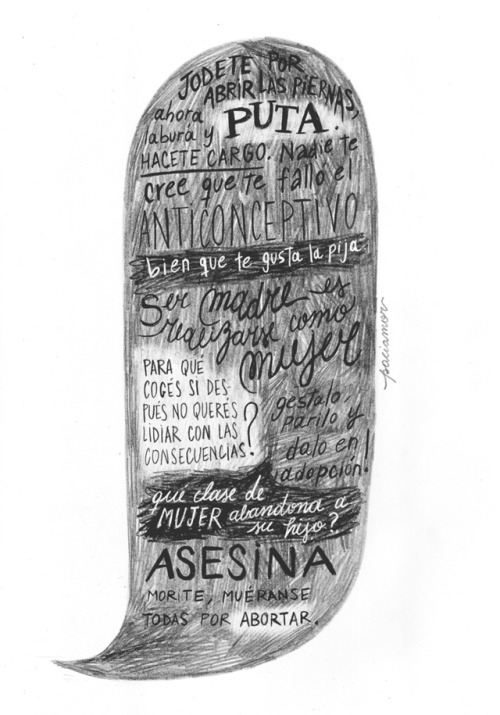 JODETE POR
ABRIR LAS PIERNAS,
ahora
laburá y PUTA.
HACETE CARGO. Nadie te
cree que te falló el
ANTICONCEPTIVO
bien que te gusta la pija
Ser madre es
realizarse como
mujer
PARA QUÉ
COGÉS SI DES-
PUÉS NO QUERÉS
LIDIAR CON LAS
CONSECUENCIAS?
gestalo,
parilo y
dalo en
adopción!
qué clase de
MUJER abandona a
su hijo?
ASESINA
MORITE, MUÉRANSE
TODAS POR ABORTAR.
paciamor